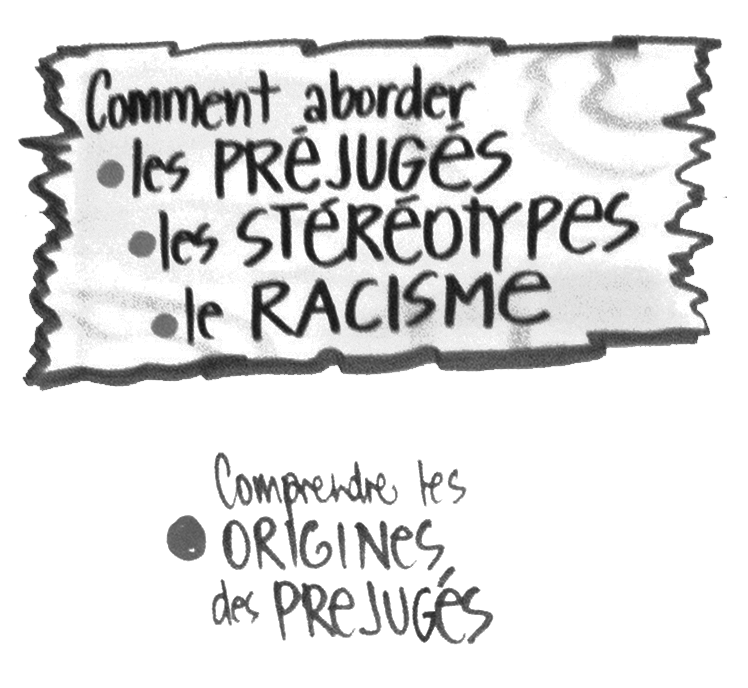 Comment aborder
• les PRÉJUGÉS
• les STÉRÉOTYPES
• le RACISME
Comprendre les
• ORIGINES
des PREJUGÉS